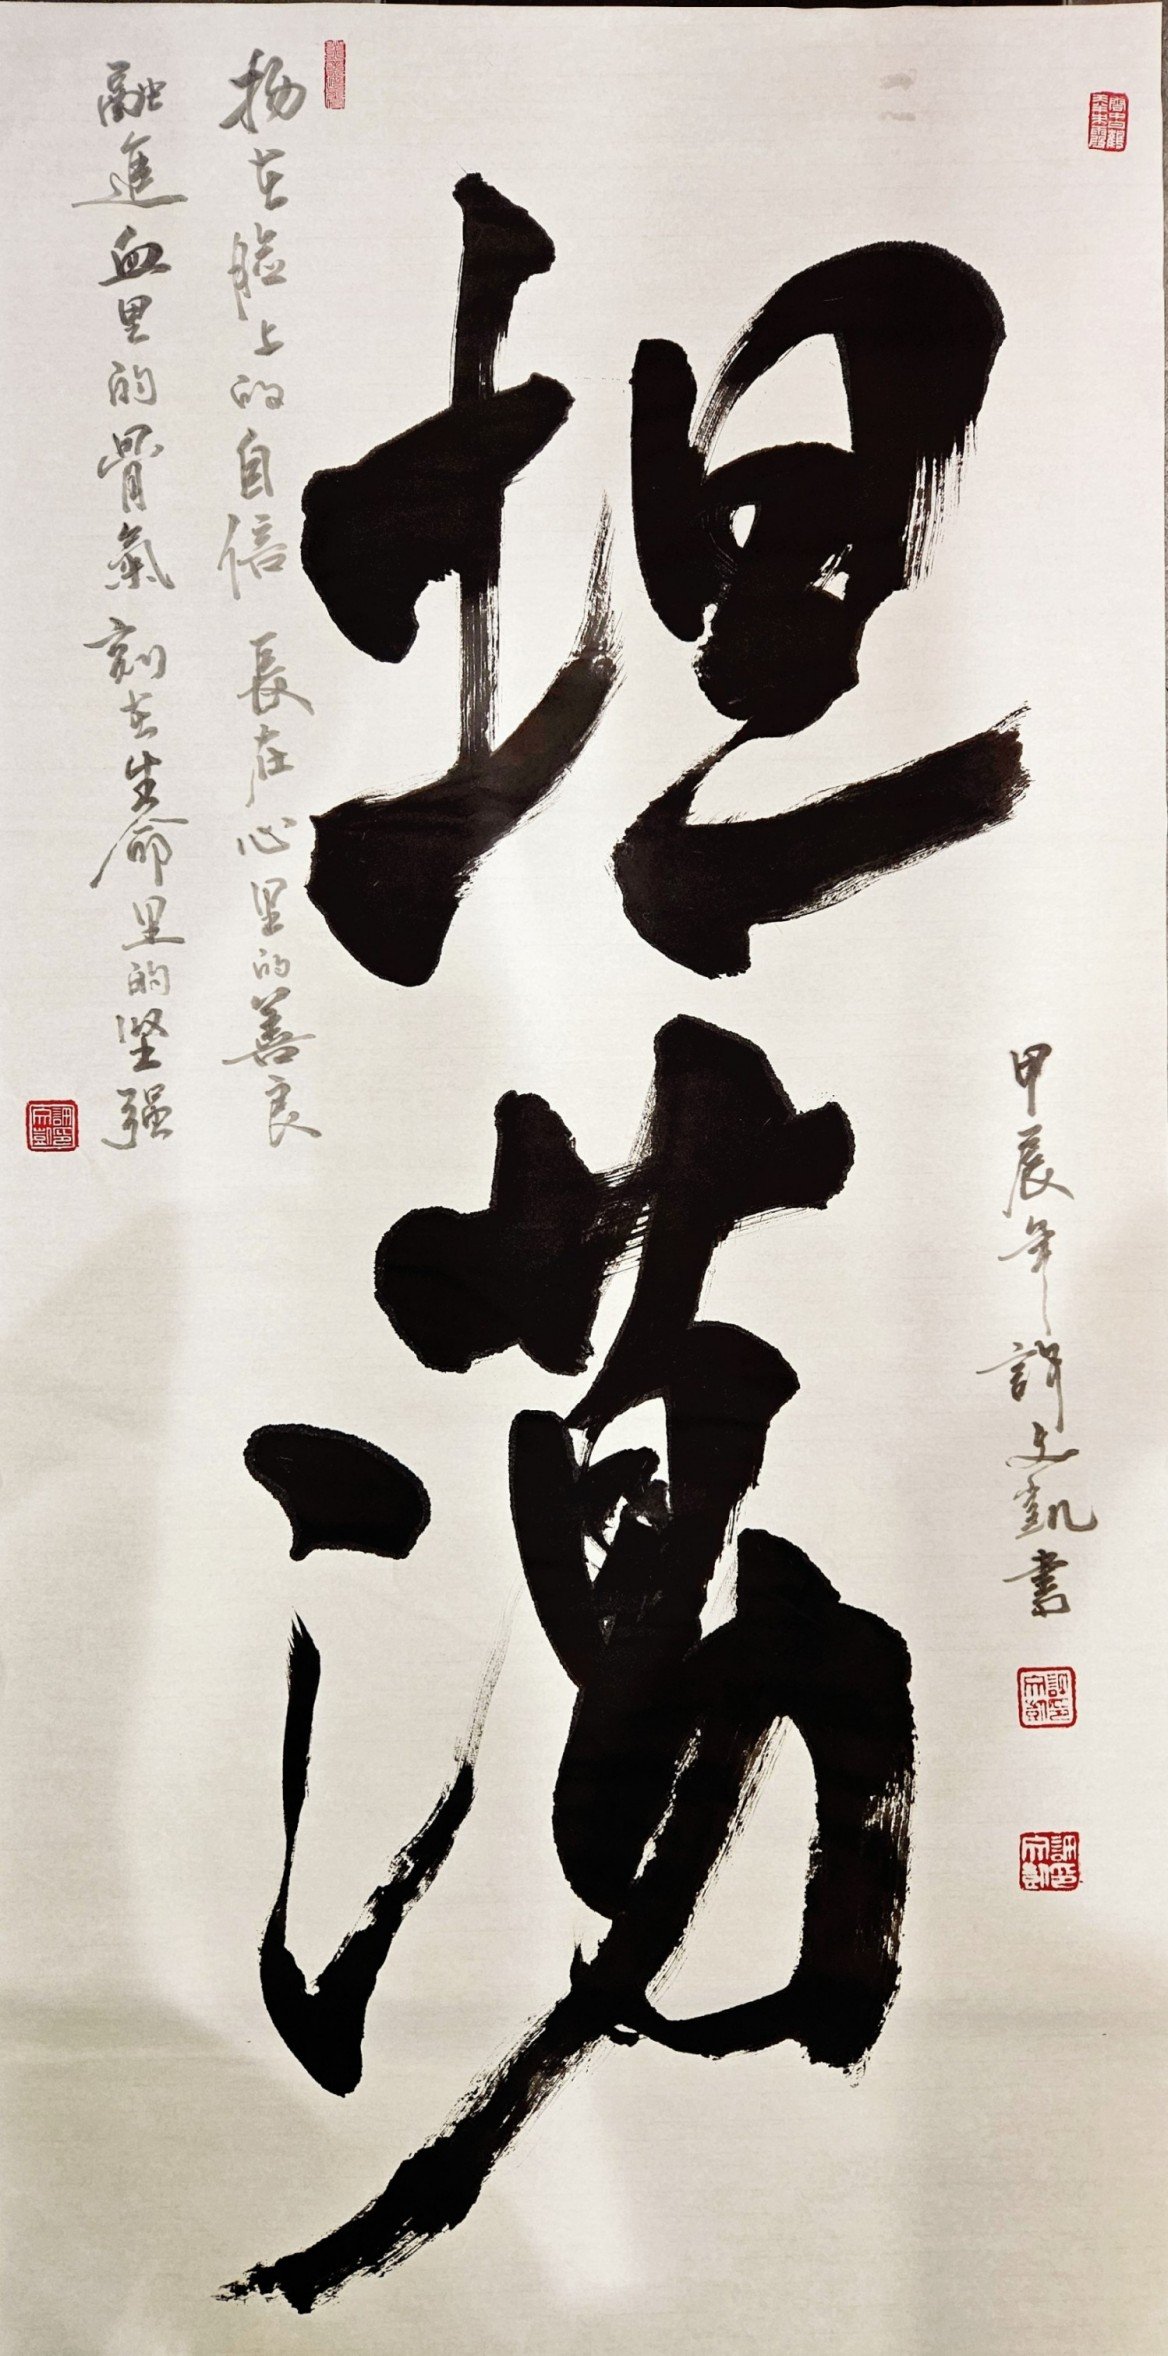 坦荡
扬在脸上的自信 長在心里的善良
融進血里的骨氣 刻在生命里的坚强
甲辰年 許文凱書